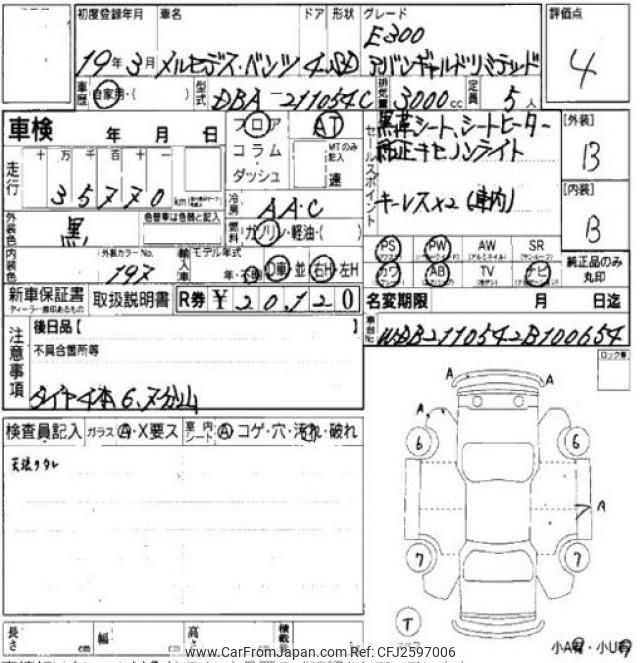 初度登録年月 車名 ドア 形状 グレード 評価点
19年3月 メルセデス・ベンツ 4 SD E300
アバンギャルドリミテッド
4
車歴 自家用・( ) 型式 DBA-211054C 排気量 3000cc 定員 5人
車検 年 月 日
フロア AT
コラム MTのみ記入
ダッシュ 速
セールスポイント 黒革シート、シートヒーター
純正キセノンライト
キーレス×2 (車内)
[外装]
B
[内装]
B
走行 十 万 千 百 十 一
35770 km
冷房 AAC
外装色 黒 色替車は色替と記入
燃料 ガソリン・軽油・( )
内装色 外装カラーNo. 197
輸入車 モデル年式 年・不明 D車 並 右H・左H
PS PW AW SR
カワ AB TV ナビ
純正品のみ丸印
新車保証書 取扱説明書 R券 ¥20,120
ディーラー捺印あるもの
名変期限 月 日迄
車台No. WDB2110542B100654
注意事項 後日品【 】
不具合箇所等
タイヤ4本6、7分山
ロック車
検査員記入 ガラス A・X要ス 室内シート A コゲ・穴・汚れ・破れ
天張りタレ
A A
A
6 6
A
7 7
T
長さ 幅 高さ 積載
小A有・小U有
www.CarFromJapan.com Ref: CFJ2597006